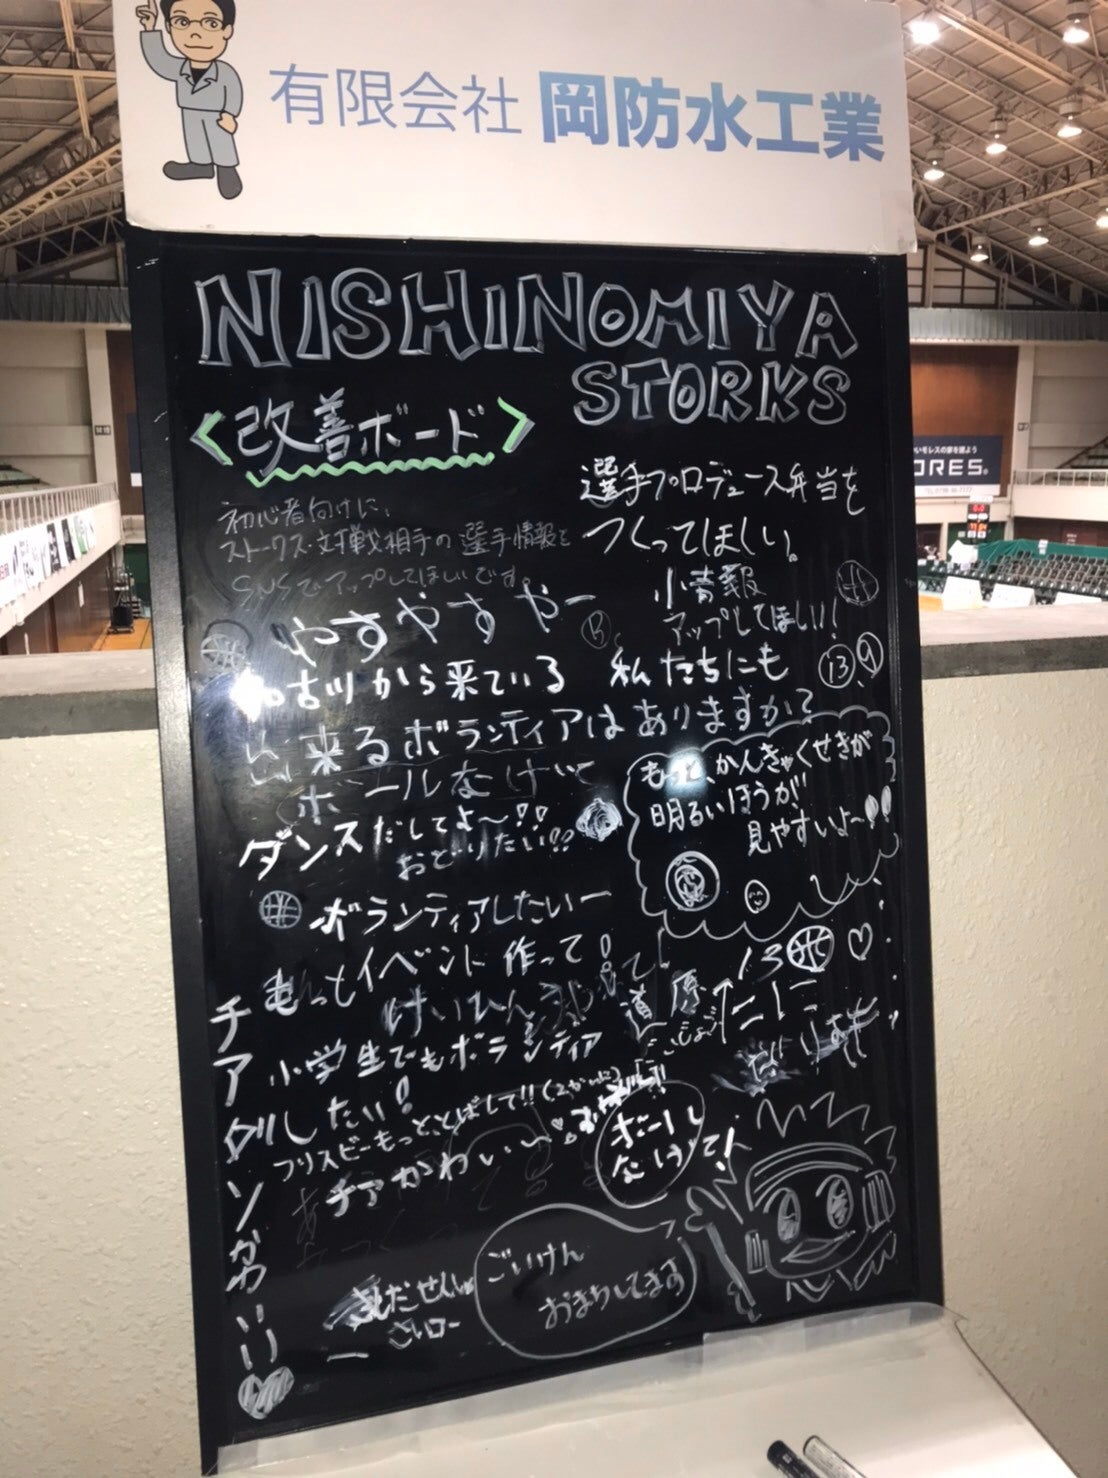 有限会社 岡防水工業
NISHINOMIYA
STORKS
改善ボード
選手プロデュース弁当を
つくってほしい。
初心者向けに、
ストークス・対戦相手の選手情報を
SNSでアップしてほしいです。
小情報
アップしてほしい!
やすやすやー
R
13
9
古川から来ている
私たちにも
来るボランティアはありますか?
ボールなげ
もっと、かんきゃくせきが
明るいほうが
見やすいよ〜!!
ダンスだしてよ〜!!
おどりたい!!
ボランティアしたいー
もっとイベント作って!
けいひん
道原
13
小学生でもボランティア
したい!
フリスビーもっととばして!!(2かいに)
チアかわいい〜
ボール
なげて!
チアソンかわいい
せんしゅ
さいコー
ごいけん
おまちしてます
ORES